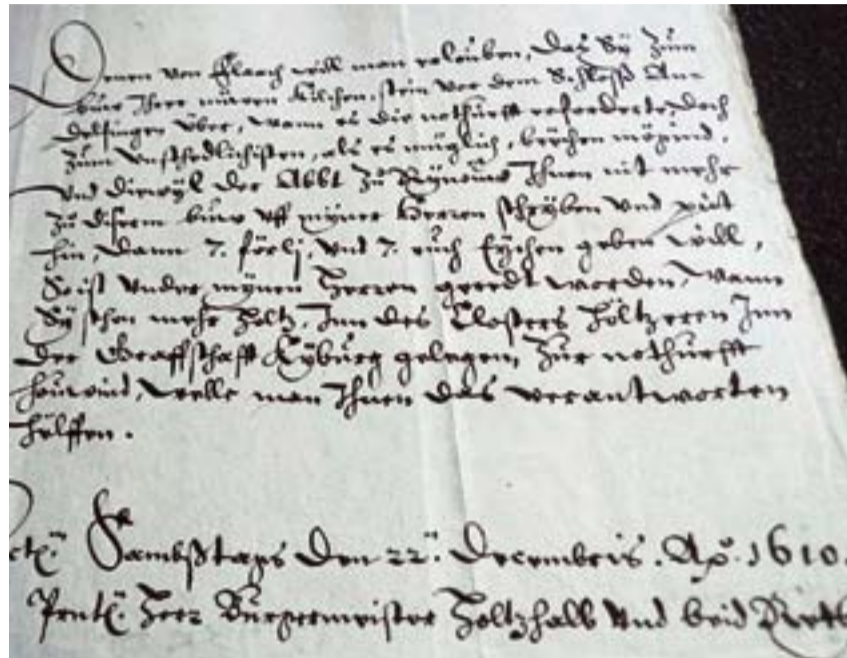 Denen von Flaach will man erlouben, Das Sÿ Zum
buw Jhrer muren Kilchen, stein vor dem Schloß An=
delfingen über, wann es die nothurfft erforderte, doch
Zum Unschedlichisten, als es müglich, bréchen mögind,
Und diewÿl der Abbt Zů Rÿnouw Jhnen nit mehr
Zů disrem buw uff mÿner Herren schrÿben Und pitt
hin, dann 7. förli, Und 7. ruch Eÿchen geben will,
So ist Under mÿnen Herren geredt worden, Wann
Sÿ schon mehr Holtz, Jnn des Closters Höltzeren Jnn
der Graffschafft Kÿburg gelegen, Zur nothurfft
houwind, welle man Jhnen das verantworten
hélffen.
Sambßtags Den 22. Decembris. Aō. 1610.
Herr Burgermeister Holtzhalb Und beid Reth